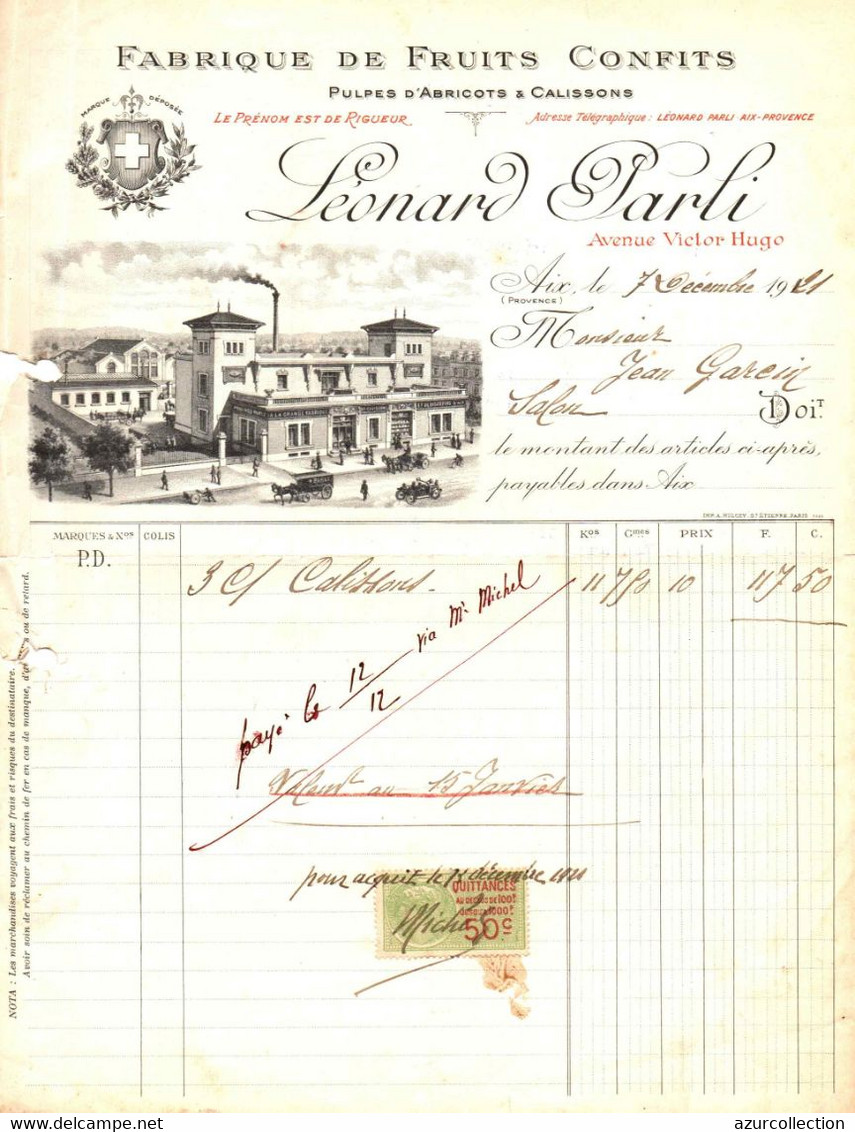 FABRIQUE DE FRUITS CONFITS
PULPES D'ABRICOTS & CALISSONS
MARQUE DÉPOSÉE
LE PRÉNOM EST DE RIGUEUR
Adresse Télégraphique : LÉONARD PARLI-AIX-PROVENCE
Léonard Parli
Avenue Victor Hugo
Aix, le 7 Décembre 1921
(PROVENCE)
Monsieur
Jean Garcin
Salon
DOIT
le montant des articles ci-après,
payables dans Aix
A LA GRANDE
ST ÉTIENNE-PARIS
MARQUES & Nos COLIS Kos Gmes PRIX F. C.
P.D.
3 C/ Calissons 11 750 10 117 50
payé le 12/12 via Mr Michel
au 15 Janvier
pour acquit le 12 décembre 1921
QUITTANCES
AU DESSUS DE 100F
1000F
50c
Michel
NOTA : Les marchandises voyagent aux frais et risques du destinataire.
Avoir soin de réclamer au chemin de fer en cas de manque, ou de retard.
delcampe.net
azurcollection